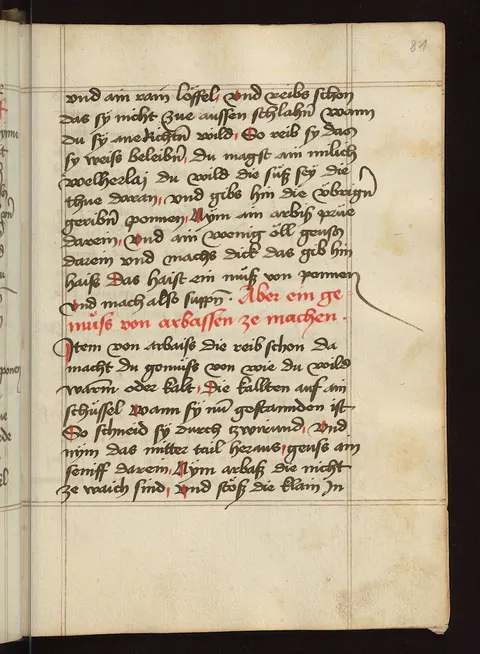 81
vnd ain rain löffel, Vnd reibs schon
das sy nicht zue aussen schlahn wann
du sy anerichtn wild, So reib sy das
sy weiss beleibn, du magst ain milich
welherlaj du wild die süß sey die
thue daran, vnd gibs hin die vbrign
geribn ponnen, Nÿm ain arbiß prüe
darein, Vnd ain wenig öll geusß
darein vnd machs dick das gib hin
haiß Das haist ein müß von ponnen
Vnd mach also suppn. Aber ein ge-
müss von arbassen ze machen.
Item von arbaiss die reib schon da
macht du gomüss von wie du wild
warm oder kalt, Die kallten auf ain
schüssel Wann sy nu gestannden ist
So schneid sy durch tzwrannd, Vnd
nÿm das mitter tail heraus, geuss ain
seniff darein, Nÿm arbaß die nicht
ze waich sind, Vnd stöß die klain In